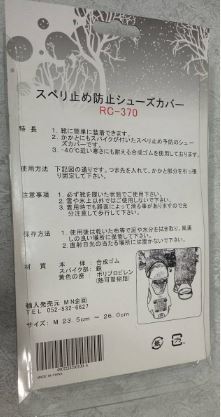 スベリ止め防止シューズカバー
RC-370
特長
1. 靴に簡単に装着できます。
2. かかとにもスパイクが付いたスベリ止め予防のシューズカバーです。
3. -40℃近い寒さにも耐える合成ゴムを使用しております。
使用方法 下記図の通りです。つま先を入れて、かかと部分を引っ張り固定して下さい。
注意事項
1. 必ず靴を履いた状態でご使用下さい。
2. 雪や氷上以外ではご使用しないで下さい。
3. 着用時でも路面によって滑る事がありますので充分注意して歩行して下さい。
保存方法
1. 使用後は乾いた布等で泥や水分を拭き取り、風通しの良い場所に保管して下さい。
2. 直射日光の当たる場所には置かないで下さい。
材質 本体 : 合成ゴム
スパイク部: 鉄
黄色の板 : ポリプロピレン
輸入発売元 MN企画
TEL 052-832-6627
サイズ: M 23.5cm ~ 26.0cm